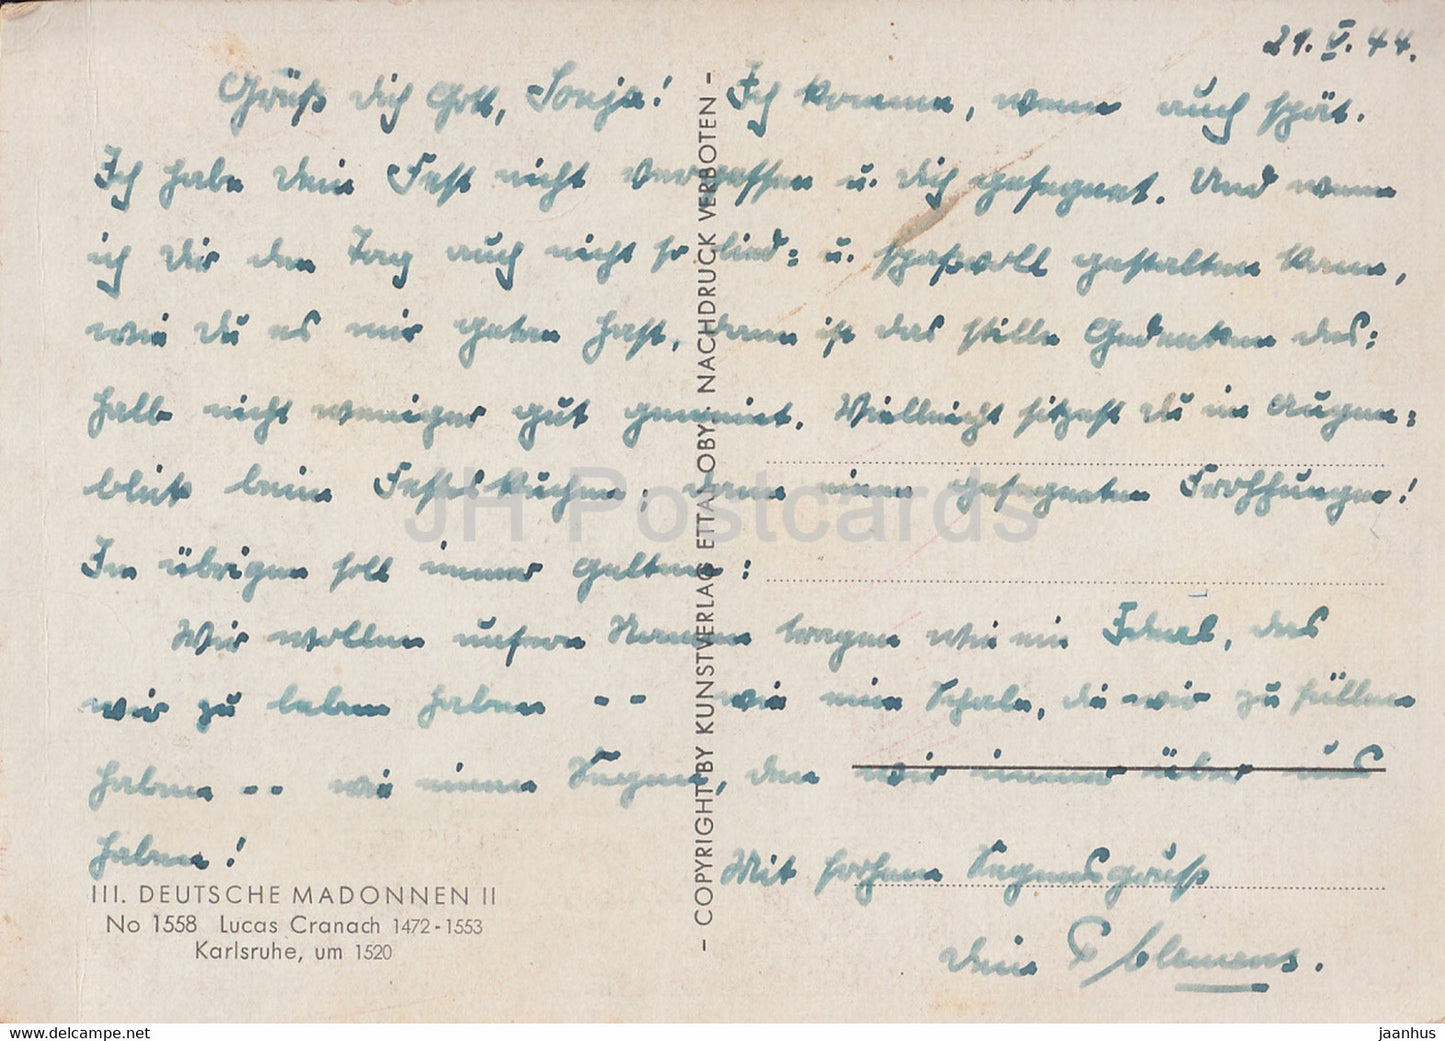 21. V. 44.
Grüß dich Gott, Sonja! Ich komme, wenn auch spät.
Ich habe Dein Fest nicht vergessen u. dich gesegnet. Und wenn
ich Dir den Tag auch nicht so u. spaßvoll gestalten kann,
wie Du es mir getan hast, dann ist das stille Gedenken des:
halb nicht weniger gut gemeint. Vielleicht sitzest Du im Augen:
blick beim Festkuchen, dann einen gesegneten
Im übrigen soll immer gelten:
Wir wollen unsern Namen tragen wie ein Ideal, das
wir zu leben haben -- wie eine Schale, die wir zu füllen
haben -- wie einen Segen, den wir immer über uns
haben!
Mit frohem Segensgruß
dein P Clemens.
III. DEUTSCHE MADONNEN II
No 1558 Lucas Cranach 1472-1553
Karlsruhe, um 1520
- COPYRIGHT BY KUNSTVERLAG ETTAL OBY. NACHDRUCK VERBOTEN -
JH Postcards
www.delcampe.net
jaanhus